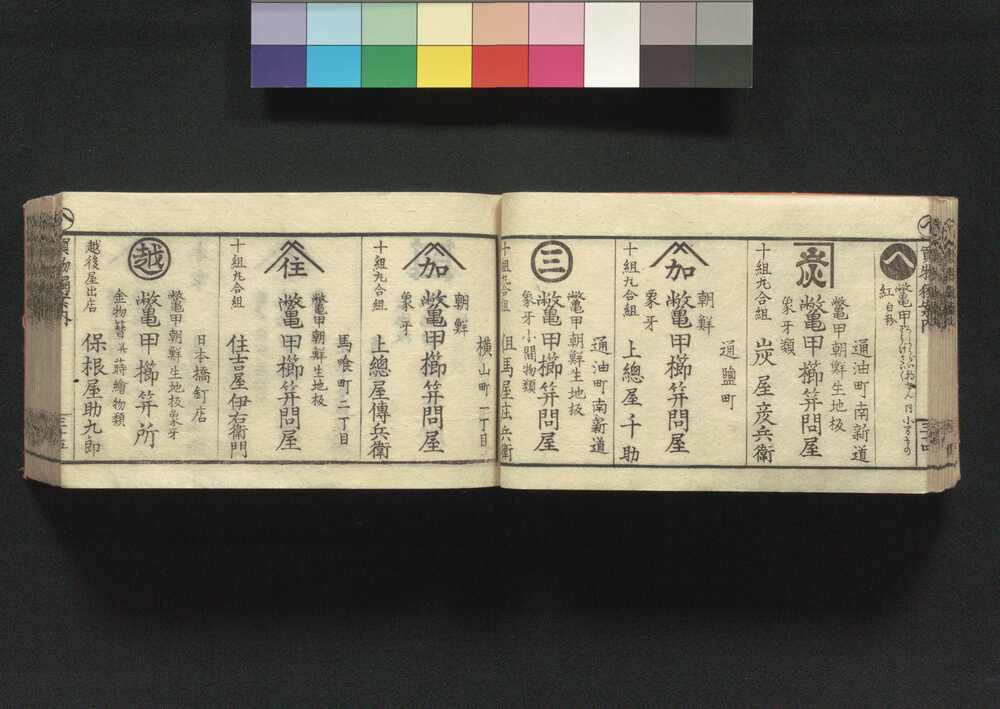 へ
鼈甲
紅白粉
通油町南新道
鼈甲朝鮮生地扱
炭
鼈甲櫛笄問屋
象牙類
炭屋彦兵衛
十組九合組
通鹽町
朝鮮
加
鼈甲櫛笄問屋
象牙
上總屋千助
十組九合組
通油町南新道
鼈甲朝鮮生地扱
三
鼈甲櫛笄問屋
象牙小間物類
但馬屋庄兵衛
十組九合組
横山町一丁目
朝鮮
加
鼈甲櫛笄問屋
象牙
上總屋傳兵衛
十組九合組
馬喰町二丁目
鼈甲朝鮮生地扱
住
鼈甲櫛笄問屋
住吉屋伊右衛門
十組九合組
日本橋釘店
鼈甲朝鮮生地扱象牙
越
鼈甲櫛笄所
金物簪并蒔繪物類
保根屋助九郎
越後屋出店
三十五